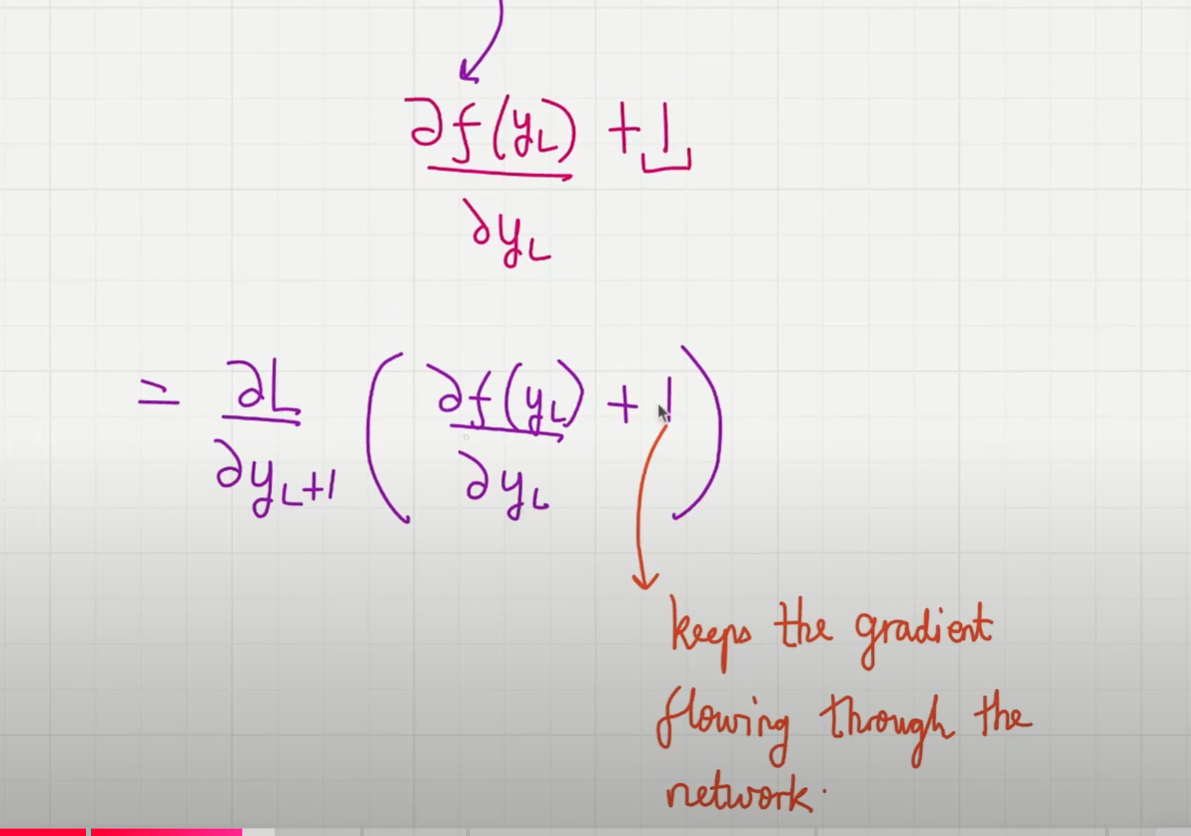 ∂f(y_L) + 1
∂y_L
= ∂L ( ∂f(y_L) + 1 )
∂y_{L+1} ∂y_L
keeps the gradient
flowing through the
network.